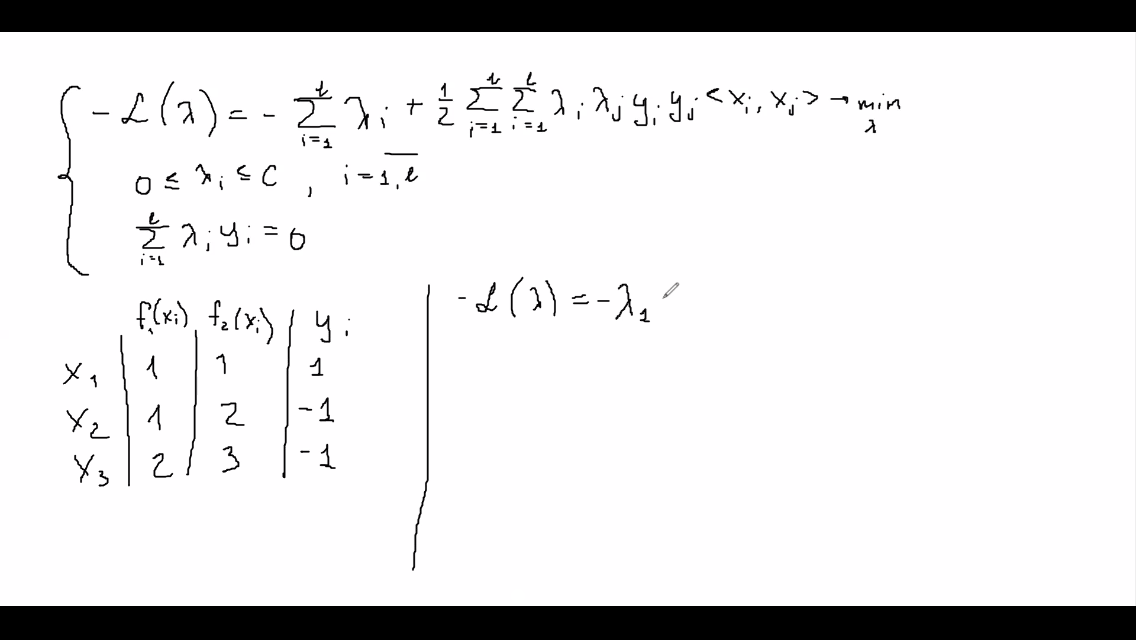 -ℒ(λ) = - ∑_{i=1}^{ℓ} λ_i + 1/2 ∑_{i=1}^{ℓ} ∑_{i=1}^{ℓ} λ_i λ_j y_i y_j <x_i, x_j> → min_λ
0 ≤ λ_i ≤ C , i = \overline{1,ℓ}
∑_{i=1}^{ℓ} λ_i y_i = 0
f_1(x_i) | f_2(x_i) | y_i
x_1 | 1 | 1 | 1
x_2 | 1 | 2 | -1
x_3 | 2 | 3 | -1
-ℒ(λ) = -λ_1